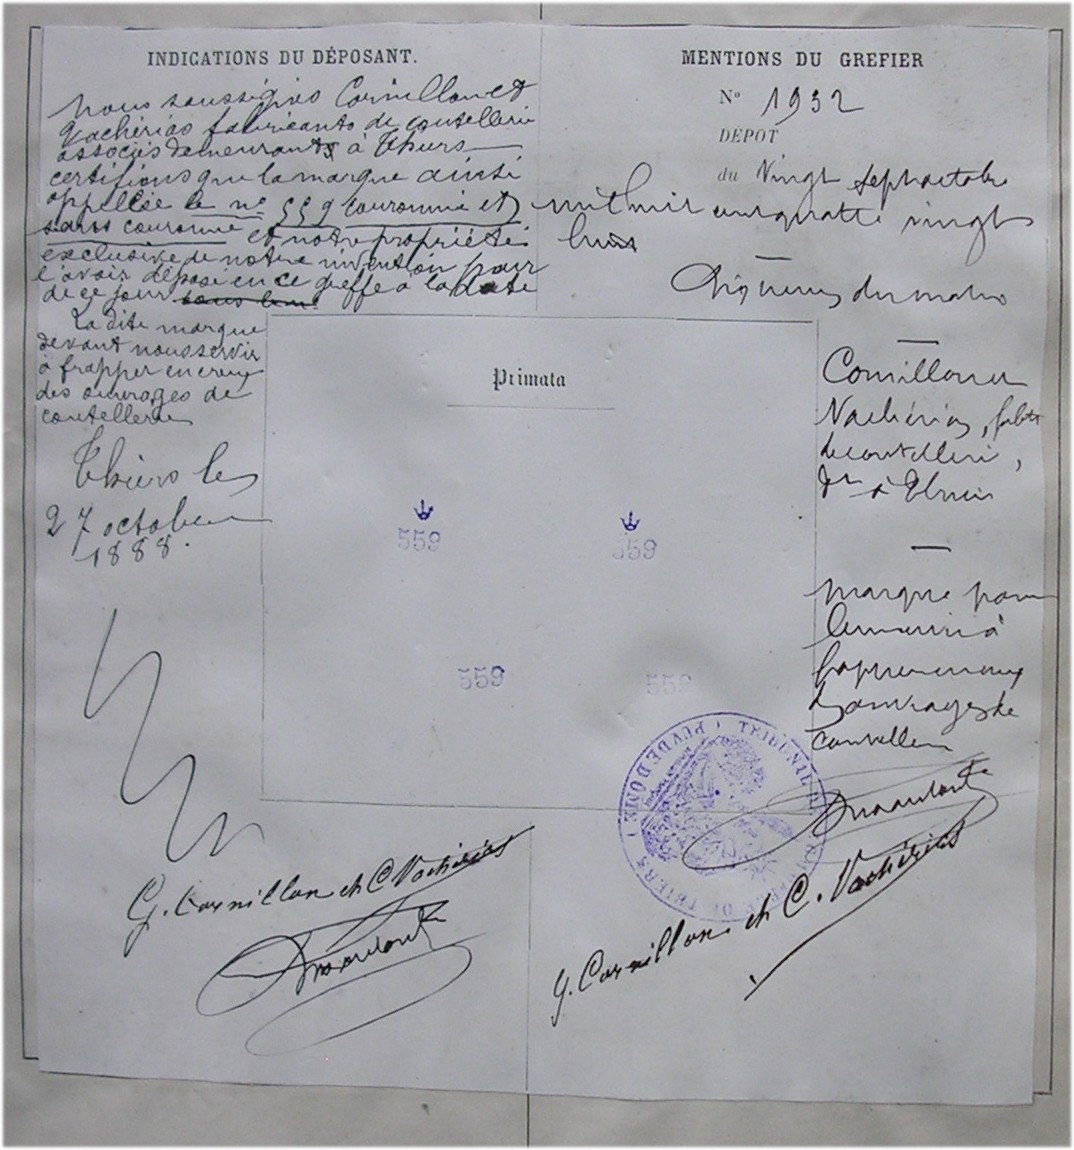 INDICATIONS DU DÉPOSANT.
Nous soussignés Cornillon et
Vachérias fabricants de coutellerie
associés demeurants à Thiers
certifions que la marque ainsi
appellée le no 559 couronné et
sans couronne et notre propriété
exclusive de notre invention pour
l'avoir déposé en ce greffe à la date
de ce jour
La dite marque
devant nous servir
à frapper en creux
des ouvrages de
coutellerie
Thiers le
27 octobre
1888.
G. Cornillon et C. Vachérias
MENTIONS DU GREFIER
No 1932
DÉPOT
du Vingt sept octobre
mil huit cent quatre vingt
huit
Cornillon et
Vachérias, fabts
de coutellerie,
dt à Thiers
Marque pour
servir à
frapper en creux
d'ouvrages de
coutellerie
G. Cornillon et C. Vachérias
Primata
559
559
559
559
TRIBUNAL DE COMMERCE DE THIERS (PUY DE DOME)